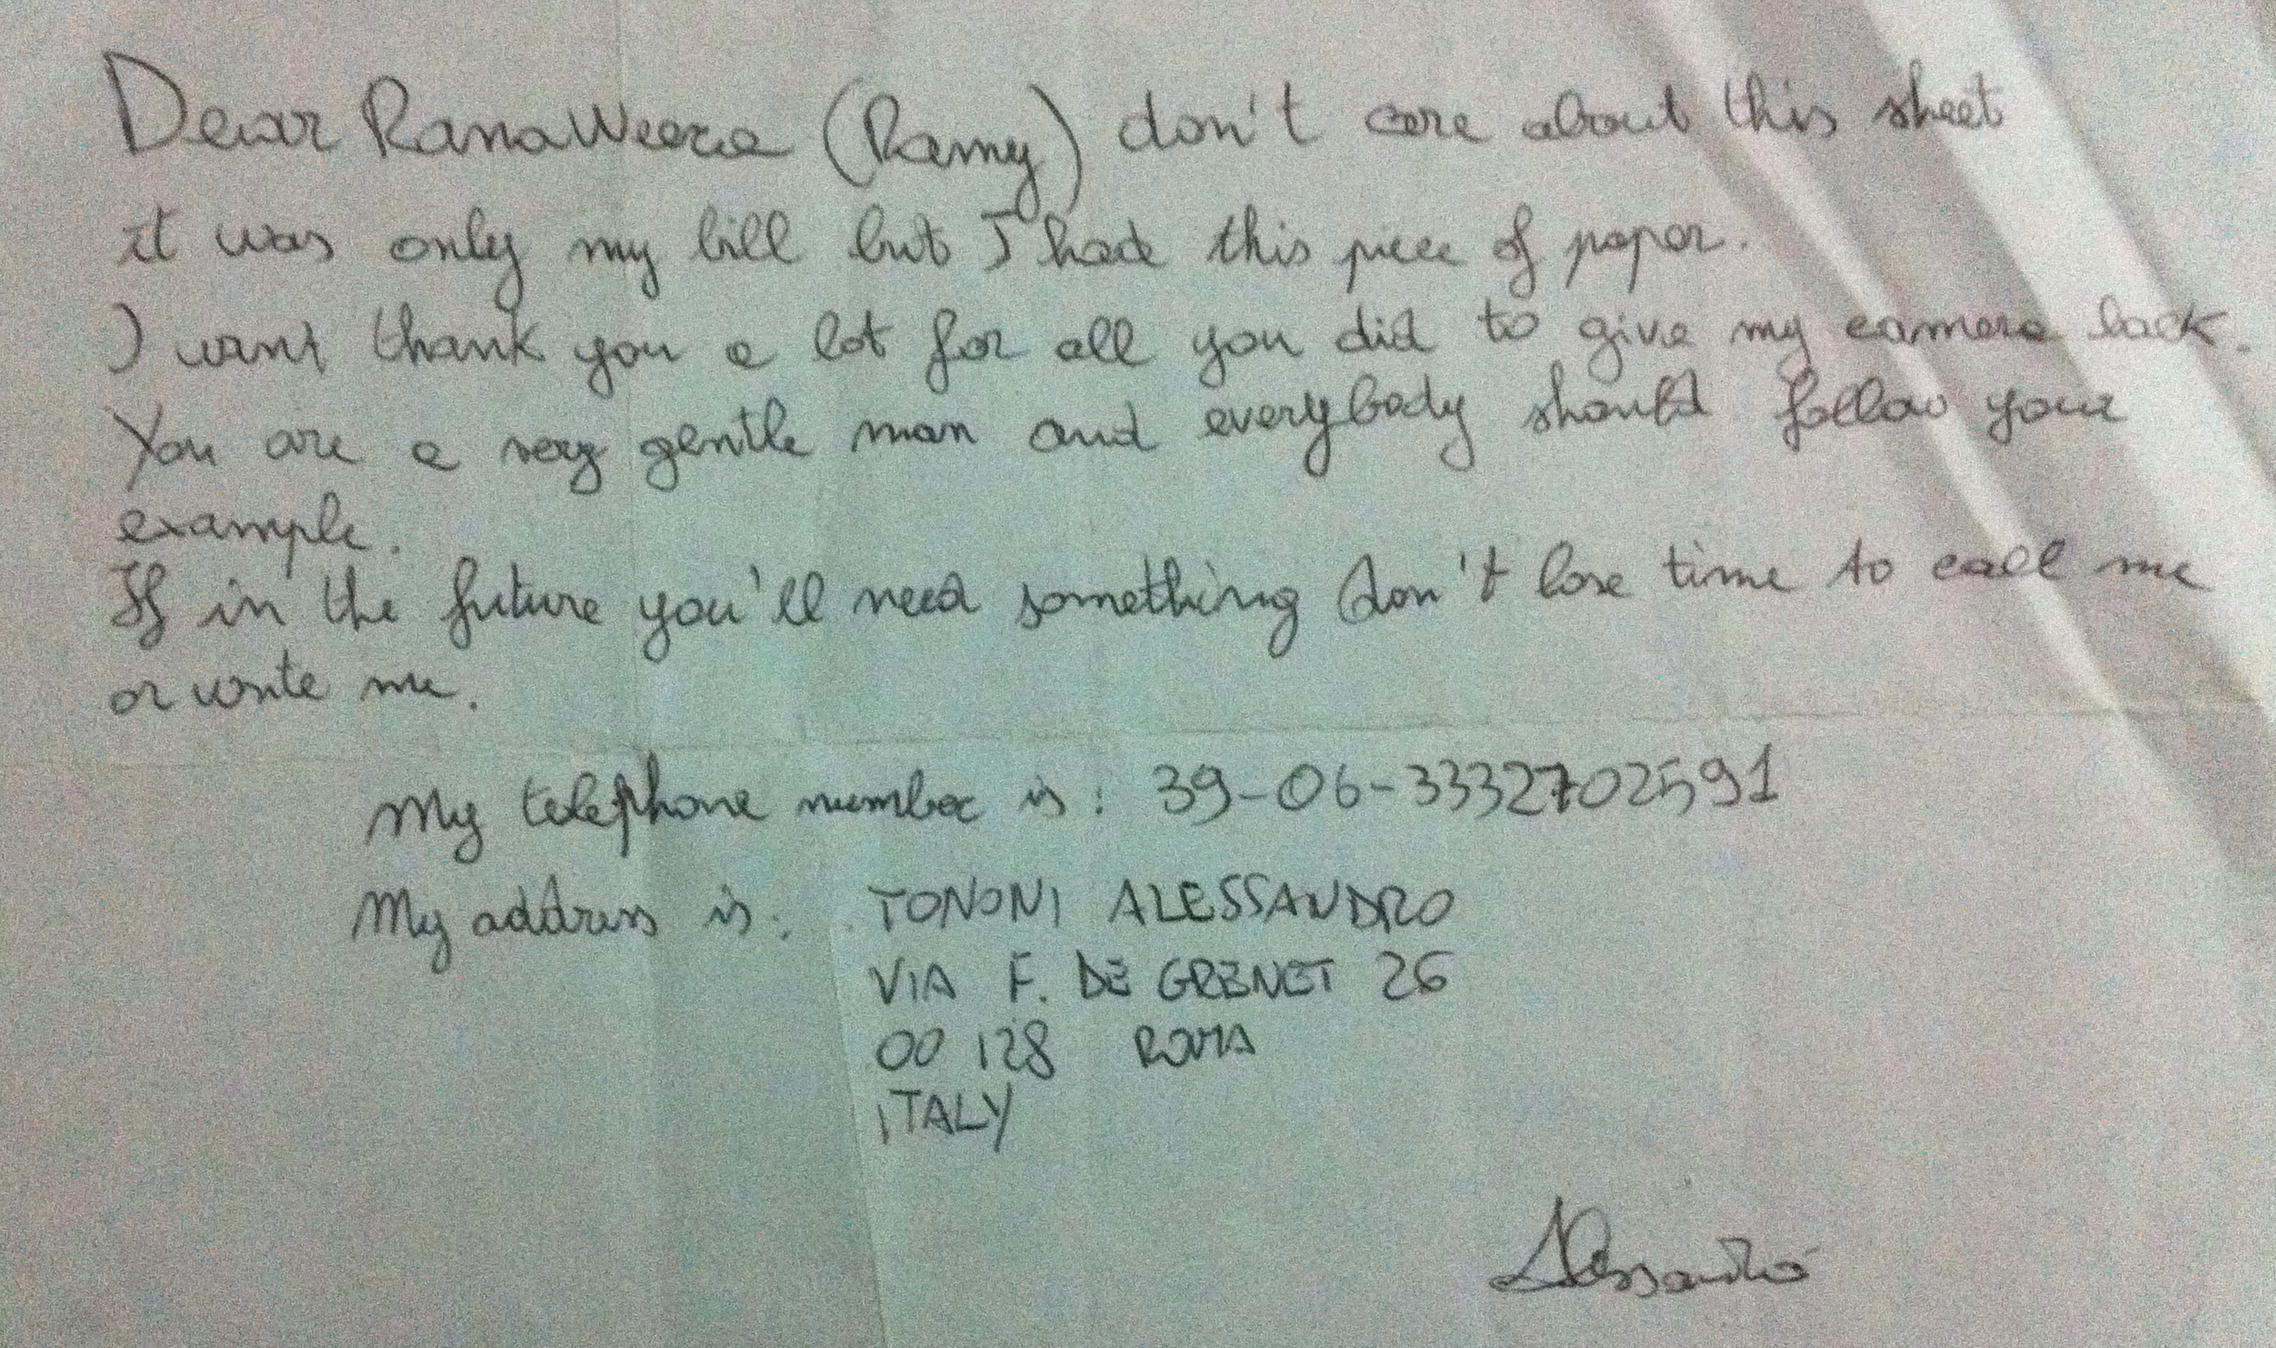 Dear RanaWeera (Ramy) don't care about this sheet
it was only my bill but I had this piece of paper.
I want thank you a lot for all you did to give my camera back.
You are a very gentle man and everybody should follow your
example.
If in the future you'll need something don't lose time to call me
or write me.
My telephone number is: 39-06-3332702591
My address is: TONONI ALESSANDRO
VIA F. DE GRENET 26
00128 ROMA
ITALY
Alessandro